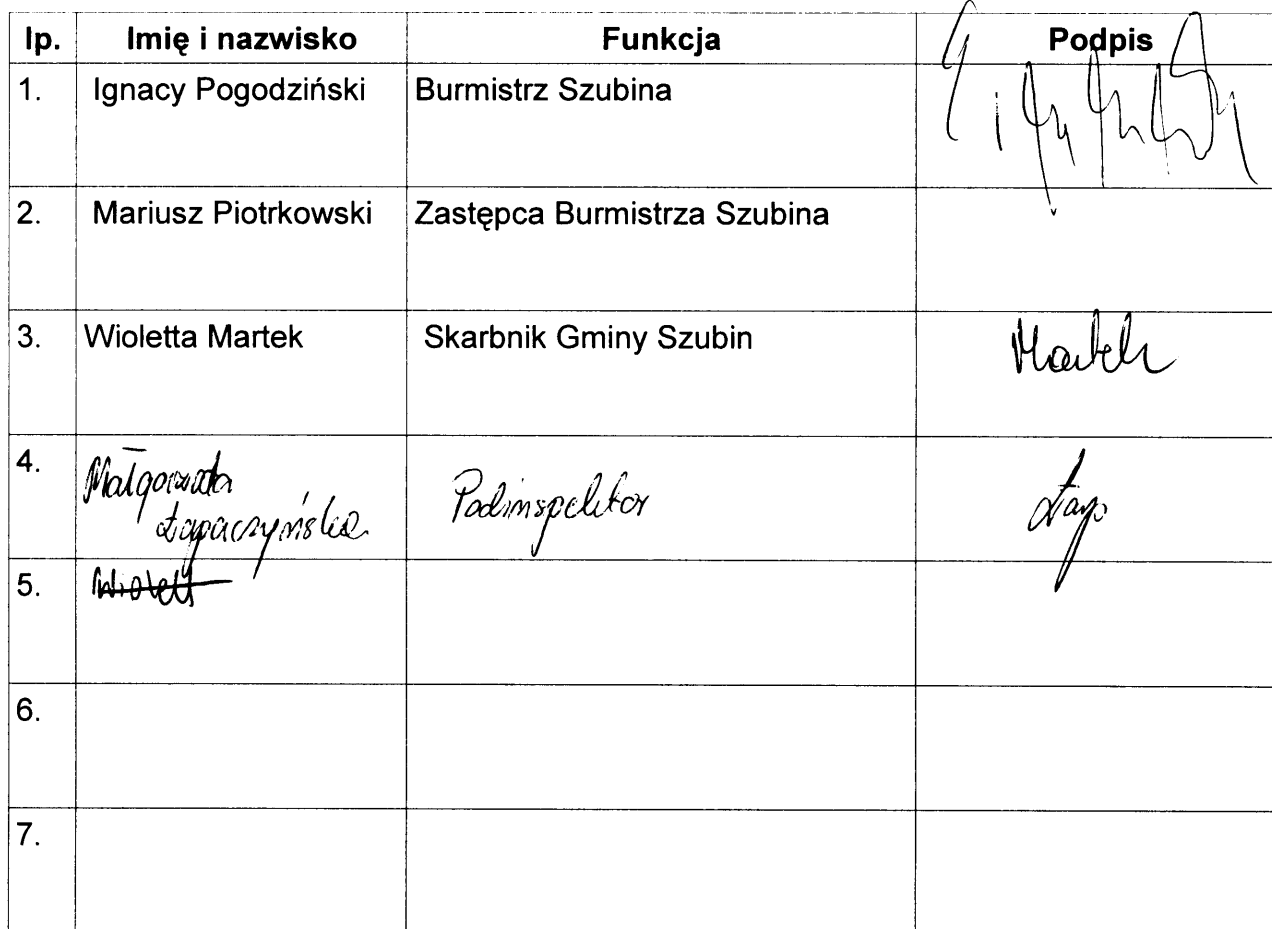 lp. Imię i nazwisko Funkcja Podpis
1. Ignacy Pogodziński Burmistrz Szubina
2. Mariusz Piotrkowski Zastępca Burmistrza Szubina
3. Wioletta Martek Skarbnik Gminy Szubin Martek
4. Małgorzata Podinspektor
Łapaczyńska
5.
6.
7.